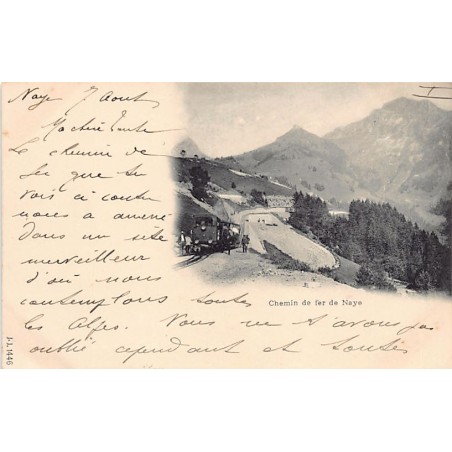 Naye 7 Aout
Ma chère Tante
Le chemin de
fer que tu
vois ci contre
nous a amené
dans un site
merveilleux
d'où nous
contemplons toutes
les Alpes. Vous ne avons pas
oublié cependant et toutes
Chemin de fer de Naye
J.J. 1446
II